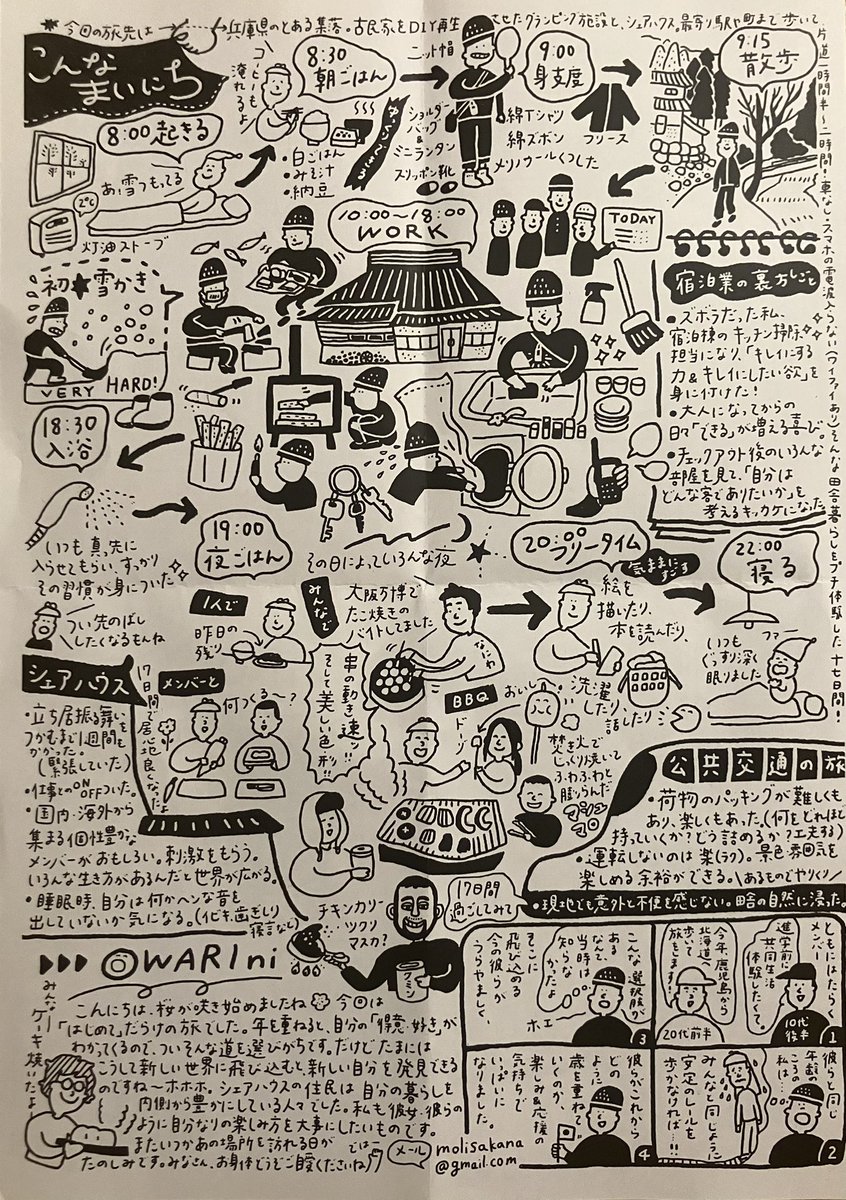 今回の旅先は
兵庫県のとある集落。古民家をDIY再生させたグランピング施設と、シェアハウス。最寄り駅や町まで歩いて、
片道一時間半〜二時間!車なし・スマホの電波入らない(ワイファイあり)そんな田舎暮らしをプチ体験した十七日間!
こんな
まいにち
8:00 起きる
あ、雪つもってる
2℃
灯油ストーブ
8:30
朝ごはん
コーヒーも
淹れるよ
・白ごはん
・みそ汁
・納豆
9:00
身支度
ニット帽
ショルダー
バッグ
&
ミニランタン
スリッポン靴
綿Tシャツ
綿ズボン
メリノウールくつした
フリース
9:15
散歩
10:00〜18:00
WORK
TODAY
初★雪かき
VERY HARD!
宿泊業の裏方しごと
・ズボラだった私、
宿泊棟のキッチン掃除
担当になり、「キレイにする
力&キレイにしたい欲」を
身に付けた!
・大人になってからの
日々「できる」が増える喜び。
・チェックアウト後のいろんな
部屋を見て、「自分は
どんな客でありたいか」を
考えるキッカケになった
18:30
入浴
いつも真っ先に
入らせてもらい、すっかり
その習慣が身についた
つい先のばし
したくなるもんね
19:00
夜ごはん
その日によっていろんな夜
1人で
昨日の
残り
みんなで
大阪万博で
たこ焼きの
バイトしてました
なにわ
串の動き速ッ!!
そして美しい色・形!!
メンバーと
何つくる〜?
BBQ
おいしー
ドーゾ
焚き火で
じっくり焼いて
ふわふわと
膨らんだ
マシュマロ
20:00
フリータイム
気ままにすごす
絵を
描いたり、
本を読んだり、
洗濯
したり、
話したり
22:00
寝る
いつも
ぐっすり深く
眠りました
シェアハウス
17日間で居心地良くなったよ
・立ち居振る舞いを
つかむまで1週間を
かかった。
(緊張していた)
・仕事とのON
OFFついた。
・国内・海外から
集まる個性豊かな
メンバーがおもしろい。刺激をもらう。
いろんな生き方があるんだと世界が広がる。
・睡眠時、自分は何かヘンな音を
出していないか気になる。(イビキ、歯ぎしり
寝言など)
チキンカリー
ツクリ
マスカ?
クミン
公共交通の旅
・荷物のパッキングが難しくも
あり、楽しくもあった。(何をどれほど
持っていくか?どう詰めるか?工夫する)
・運転しないのは楽(ラク)。景色・雰囲気を
楽しめる余裕ができる。\あるものでやりくり/
・現地でも意外と不便を感じない。田舎の自然に浸った。
17日間
過ごしてみて
ともにはたらく
メンバー
進学前に
共同生活
体験したくて。
10代
後半
今年、鹿児島から
北海道へ
歩いて
旅をします!
20代前半
1
彼らと同じ
年齢の
ころの
私は…
みんなと同じように
安定のレールを
歩かなければ…!!
2
こんな選択肢が
あるなんて、
当時は
知らな
かったよ
そこに
飛び込める
今の彼らが
うらやましく、
ホエー
3
彼らがこれから
どのように
歳を重ねて
いくのか、
楽しみ&応援の
気持ちで
いっぱいに
なりました。
4
▶▶▶ OWARIni
みんなでケーキ焼いたよ
こんにちは、桜が咲き始めましたね 今回は
「はじめて」だらけの旅でした。年を重ねると、自分の「得意・好き」が
わかってくるので、ついそんな道を選びがちです。だけど、たまには
こうして新しい世界に飛び込むと、新しい自分を発見できる
のですね〜ホホホ。シェアハウスの住民は自分の暮らしを
内側から豊かにしている人々でした。私も彼女・彼らの
ように自分なりの楽しみ方を大事にしたいものです。
またいつかあの場所を訪れる日が
たのしみです。みなさん、お身体どうぞご自愛くださいね
では
メール
molisakana
@gmail.com